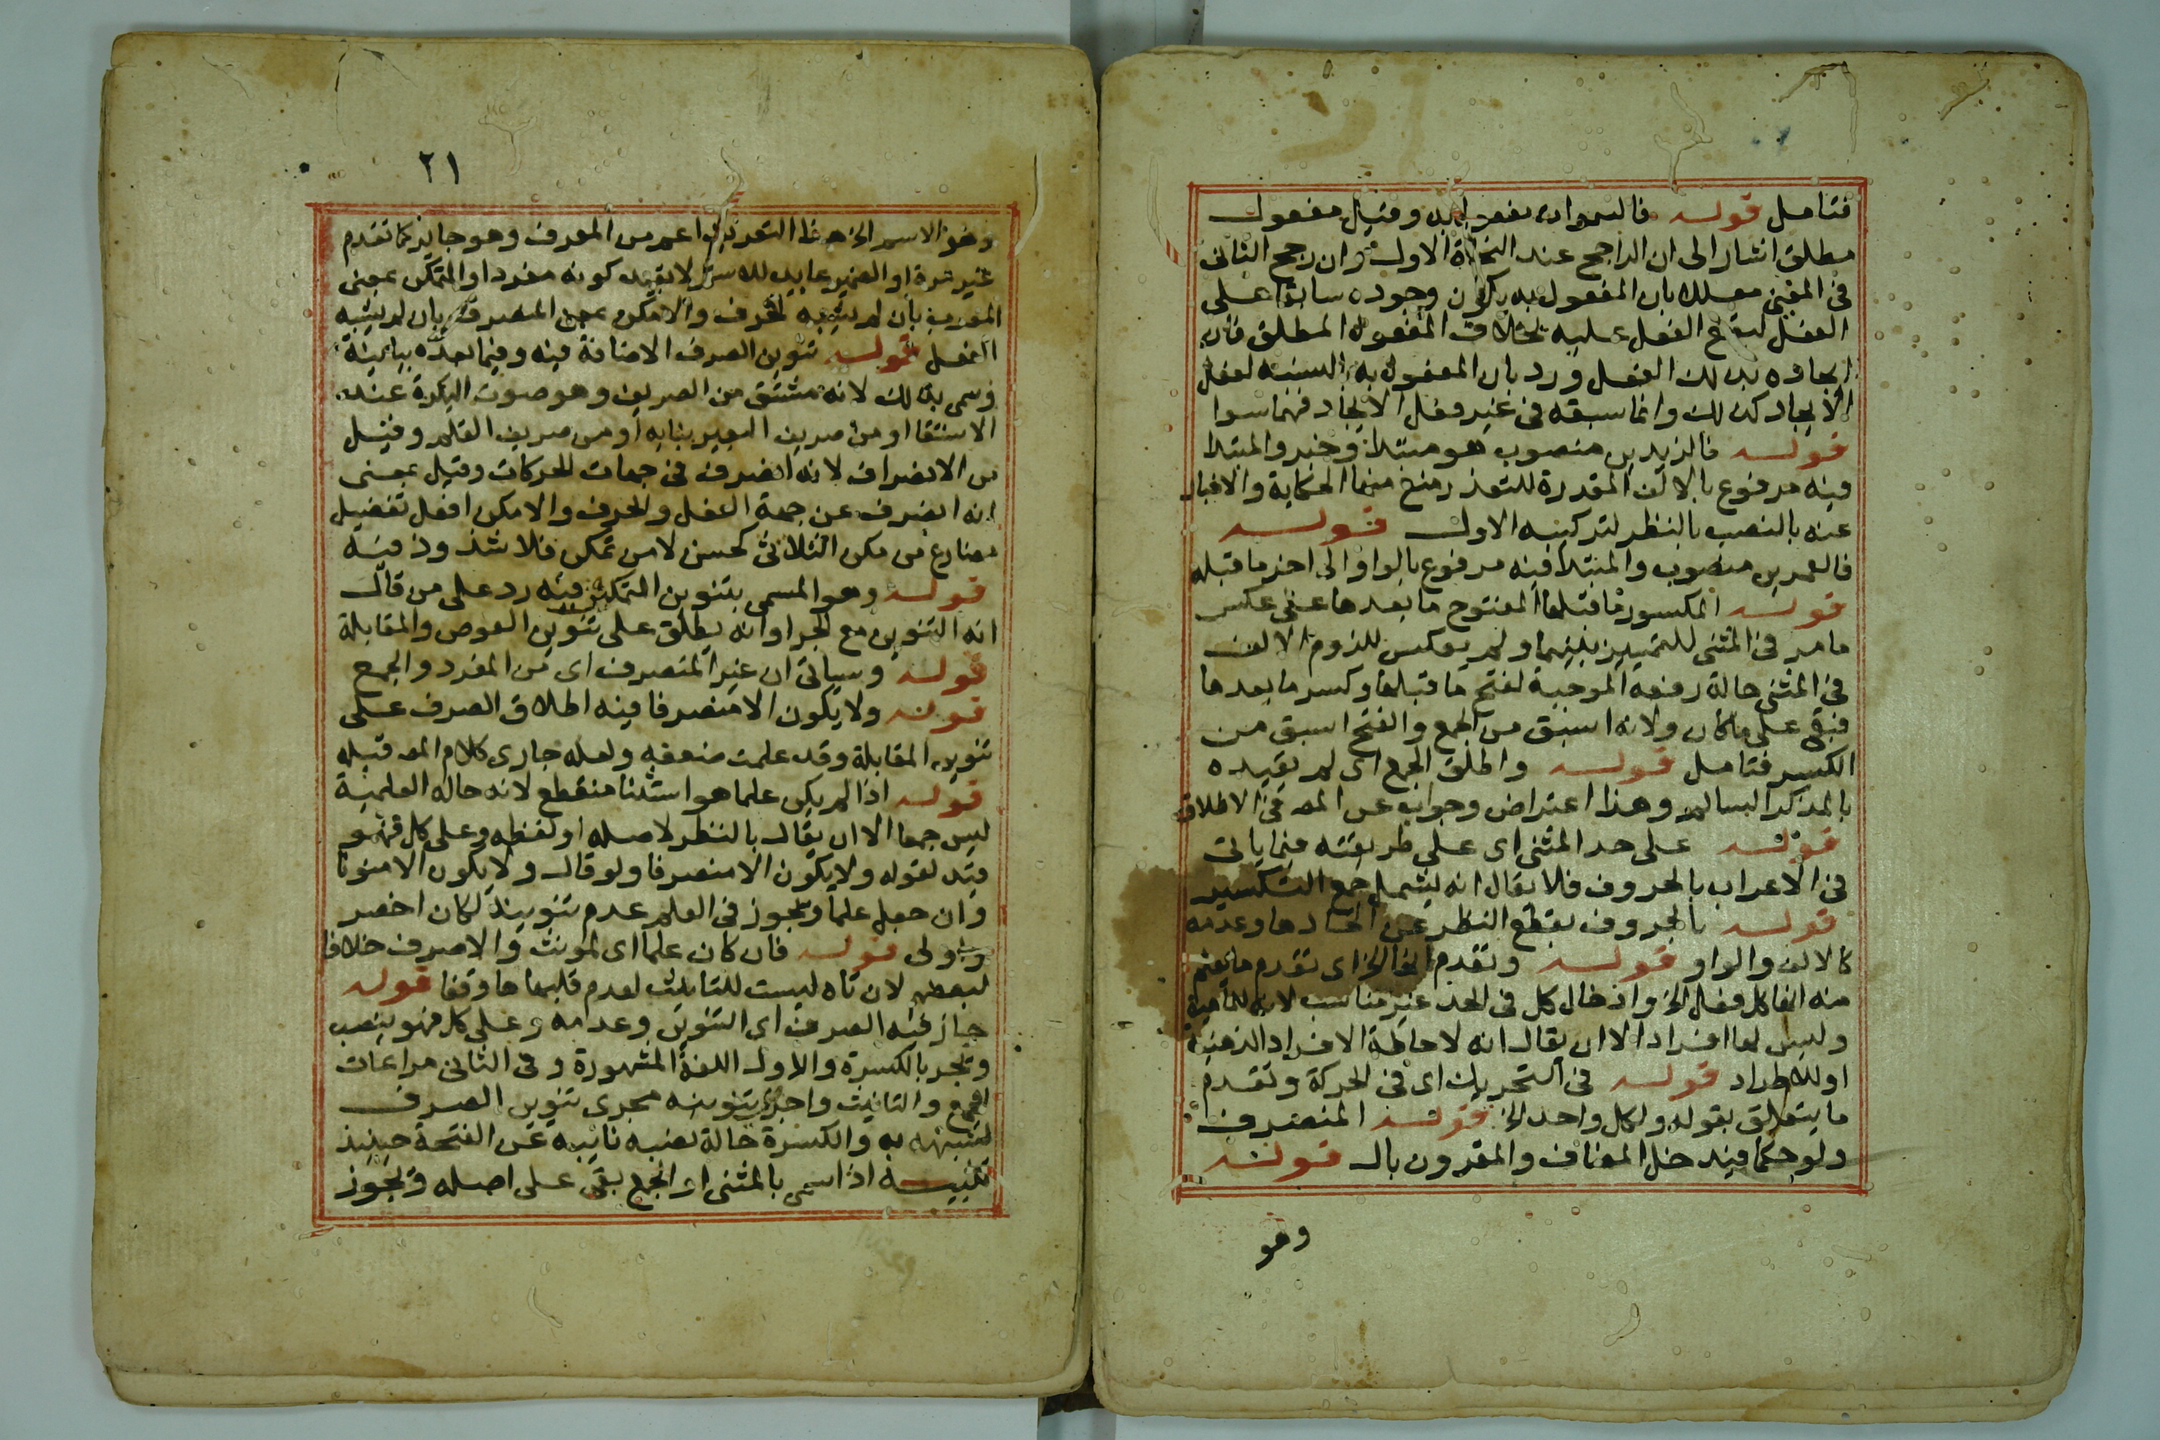 فتامل قوله فالسموات مفعول به وقيل مفعول
مطلق اشار الى ان الراجح عند النحاة الاول وان رجح الثانى
فى المغنى معللا بان المفعول به يكون وجوده سابقا على
الفعل ليقع الفعل عليه بخلاف المفعول المطلق فان
ايجاده بذلك الفعل ورد بان المفعول به بالنسبة لفعل
الايجاد كذلك وانما سبقه فى غير فعل الايجاد فهما سوا
قوله فالزيدين منصوب هو مبتدا وخبر والمبتدا
فيه مرفوع بالالف المقدرة للتعذر منع منها الحكاية والاخبار
عنه بالنصب بالنظر لتركيبه الاول قوله
فالعمرين منصوب والمبتدا فيه مرفوع بالواو الى اخر ما قبله
قوله المكسور ما قبلها المفتوح ما بعدها على عكس
ما مر فى المثنى للتمييز بينهما ولم يعكس للزوم الالف
فى المثنى حالة رفعه الموجبة لفتح ما قبلها وكسر ما بعدها
فبقى على ما كان ولانه اسبق من الجمع والفتح اسبق من
الكسر فتامل قوله واطلق الجمع اى لم يقيده
بالمذكر السالم وهذا اعتراض وجواب عن المص فى الاطلاق
قوله على حد المثنى اى على طريقته فيما ياتى
فى الاعراب بالحروف فلا يقال انه يشمل جمع التكسير
قوله بالحروف بقطع النظر عن اتحادها وعدمه
كالالف والواو قوله وتقدم انفا الخ اى تقدم ما يفهم
منه انفا كل فعل الخ وادخال كل فى الحد غير مناسب لانه للماهية
وليس لها افراد الا ان يقال انه لاحاطة الافراد الذهنية
او للاطراد قوله فى التحريك اى فى الحركة وتقدم
ما يتعلق بقوله ولكل واحد الخ قوله المنصرف
ولو حكما فيدخل المضاف والمقرون بال قوله
وهو
٢١
وهو الاسم الخ هذا التعريف اعم من المعرف وهو جايز كما تقدم
غير مرة او الضمير عايد للاسم لا بقيد كونه مفردا والمتمكن بمعنى
المعرب بان لم يشبه الحرف والامكن بمعنى المنصرف بان لم يشبه
الفعل قوله تنوين الصرف الاضافة فيه وفيما بعده بيانية
وسمى بذلك لانه مشتق من الصريف وهو صوت البكرة عند
الاستقا او من صريف البعير بنابه او من صريف القلم وقيل
من الانصراف لانه انصرف فى جهات الحركات وقيل بمعنى
انه انصرف عن جهة الفعل والحرف والامكن افعل تفضيل
مضارع من مكن الثلاثى كحسن لا من تمكن فلا شذوذ فيه
قوله وهو المسمى بتنوين التمكين فيه رد على من قال
انه التنوين مع الجر او انه يطلق على تنوين العوض والمقابلة
قوله وسياتى ان غير المنصرف اى من المفرد والجمع
قوله ولا يكون الا منصرفا فيه اطلاق الصرف على
تنوين المقابلة وقد علمت ضعفه ولعله جارى كلام المص قبله
قوله اذا لم يكن علما هو استثنا منقطع لانه حاله العلمية
ليس جمعا الا ان يقال بالنظر لاصله او لفظه وعلى كل فهو
قيد لقوله ولا يكون الا منصرفا ولو قال ولا يكون الا منونا
وان جعل علما ويجوز فى العلم عدم تنوينه لكان اخصر
واولى قوله فان كان علما اى لمونث والا صرف خلافا
لبعضهم لان تاه ليست للتانيث لعدم قلبها ها وقفا قوله
جاز فيه الصرف اى التنوين وعدمه وعلى كل فهو ينصب
ويجر بالكسرة والاول اللغة المشهورة وفى الثانى مراعات
الجمع والتانيث واجرى تنوينه مجرى تنوين الصرف
لشبهه به والكسرة حالة نصبه نايبه عن الفتحة حينيذ
تنبيه اذا سمى بالمثنى او الجمع بقى على اصله ويجوز